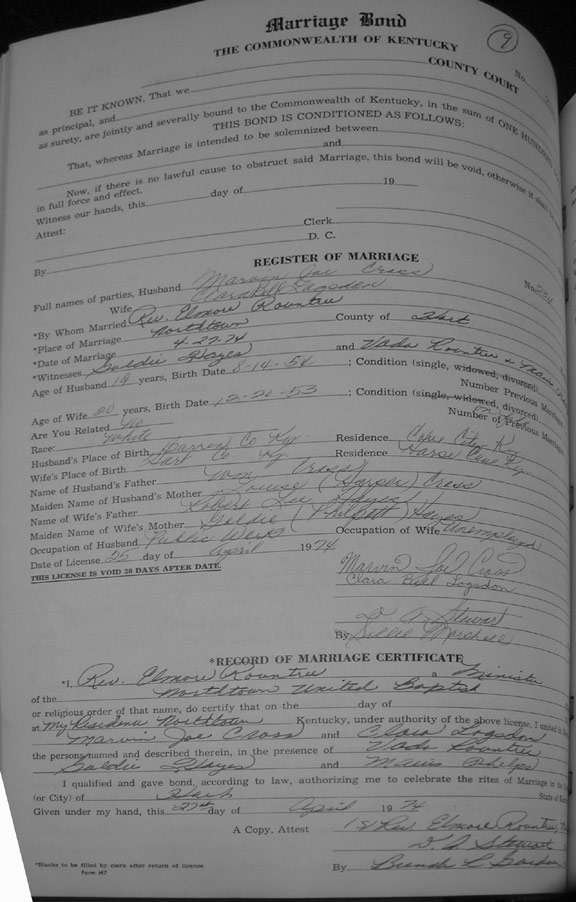 Marriage Bond
9
THE COMMONWEALTH OF KENTUCKY
COUNTY COURT
No.
BE IT KNOWN, That we
as principal, and
as surety, are jointly and severally bound to the Commonwealth of Kentucky, in the sum of ONE HUNDRED
THIS BOND IS CONDITIONED AS FOLLOWS:
That, whereas Marriage is intended to be solemnized between
and
Now, if there is no lawful cause to obstruct said Marriage, this bond will be void, otherwise it shall be
in full force and effect.
Witness our hands, this day of 19
Attest:
Clerk
By D. C.
REGISTER OF MARRIAGE
Full names of parties, Husband Marvin Joe Cross No. 234
Wife Clara Bell Logsdon
*By Whom Married Rev. Elmore Rountree
*Place of Marriage Northtown County of Hart
*Date of Marriage 4-27-74
*Witnesses Goldie Hayes and Vada Rountree
Age of Husband 19 years, Birth Date 8-14-54; Condition (single, widowed, divorced)
Number Previous Marriages
Age of Wife 20 years, Birth Date 12-20-53; Condition (single, widowed, divorced)
Number of Previous Marriages
Are You Related No
Race: White
Husband's Place of Birth Barren Co Ky. Residence Cave City Ky
Wife's Place of Birth Hart Co Ky. Residence Horse Cave Ky
Name of Husband's Father Wm Cross
Maiden Name of Husband's Mother Louise (Harper) Cross
Name of Wife's Father Robert Lee Hayes
Maiden Name of Wife's Mother Goldie (Philpott) Hayes
Occupation of Husband Public Work Occupation of Wife Unemployed
Date of License 25 day of April 1974
THIS LICENSE IS VOID 30 DAYS AFTER DATE.
Marvin Joe Cross
Clara Bell Logsdon
D A Stewart
By
*RECORD OF MARRIAGE CERTIFICATE
*I, Rev. Elmore Rountree a Minister
of the Northtown United Baptist
or religious order of that name, do certify that on the day of
at My Residence Northtown Kentucky, under authority of the above license, I united in
Marvin Joe Cross and Clara Logsdon
the persons named and described therein, in the presence of Vada Rountree
Goldie Hayes and Mavis Phelps
I qualified and gave bond, according to law, authorizing me to celebrate the rites of Marriage in the
(or City) of Hart State of
Given under my hand, this 27th day of April 1974
A Copy, Attest /s/ Rev. Elmore Rountree
D A Stewart
By
*Blanks to be filled by clerk after return of license.
Form 167